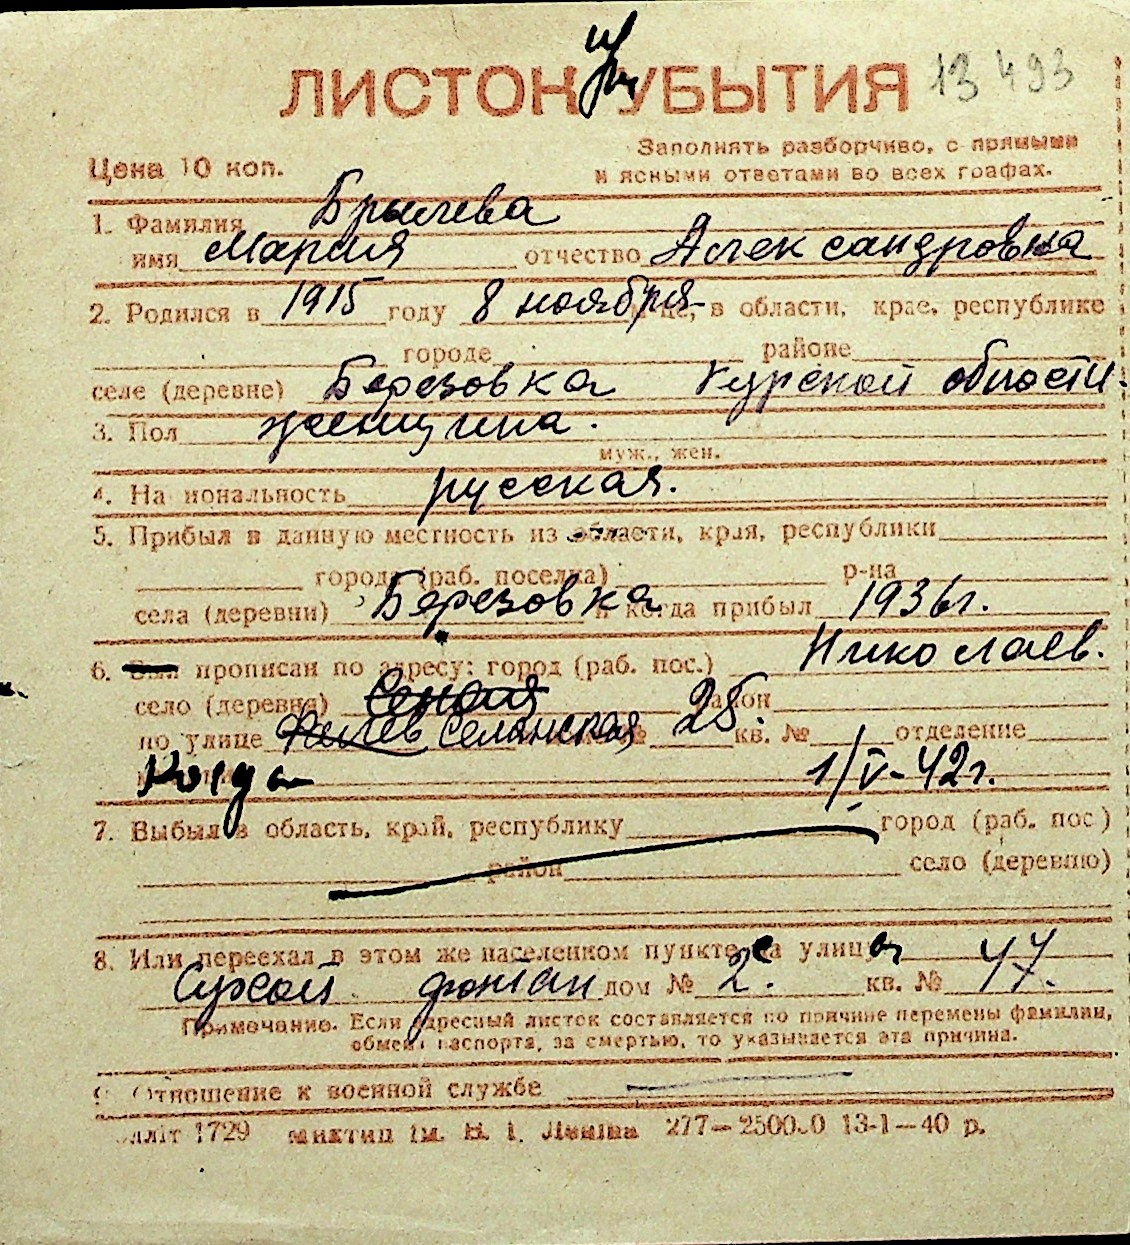 ЛИСТОК при УБЫТИЯ 13 493
Цена 10 коп.
Заполнять разборчиво, с прямыми
и ясными ответами во всех графах.
1. Фамилия Брылева
имя Мария отчество Александровна
2. Родился в 1915 году 8 ноября м-це, в области, крае, республике
городе районе
селе (деревне) Березовка Курской области.
3. Пол женщина.
муж., жен.
4. На иональность русская.
5. Прибыл в данную местность из области, края, республики
города (раб. поселка) р-на
села (деревни) Березовка и когда прибыл 1936 г.
6. Был прописан по адресу: город (раб. пос.) Николаев.
село (деревня) район
по улице Селянская 25. кв. № отделение
Когда 1/V-42 г.
7. Выбыл в область, край, республику город (раб. пос)
район село (деревню)
8. Или переехал в этом же населенном пункте с улицы 47
Сухой фонтан дом № 2. кв. № 47.
Примечание. Если адресный листок составляется по причине перемены фамилии,
обмена паспорта, за смертью, то указывается эта причина.
9. Отношение к военной службе
лліт 1729 миктип ім. В. І. Леніна 277—2500.0 13-1—40 р.